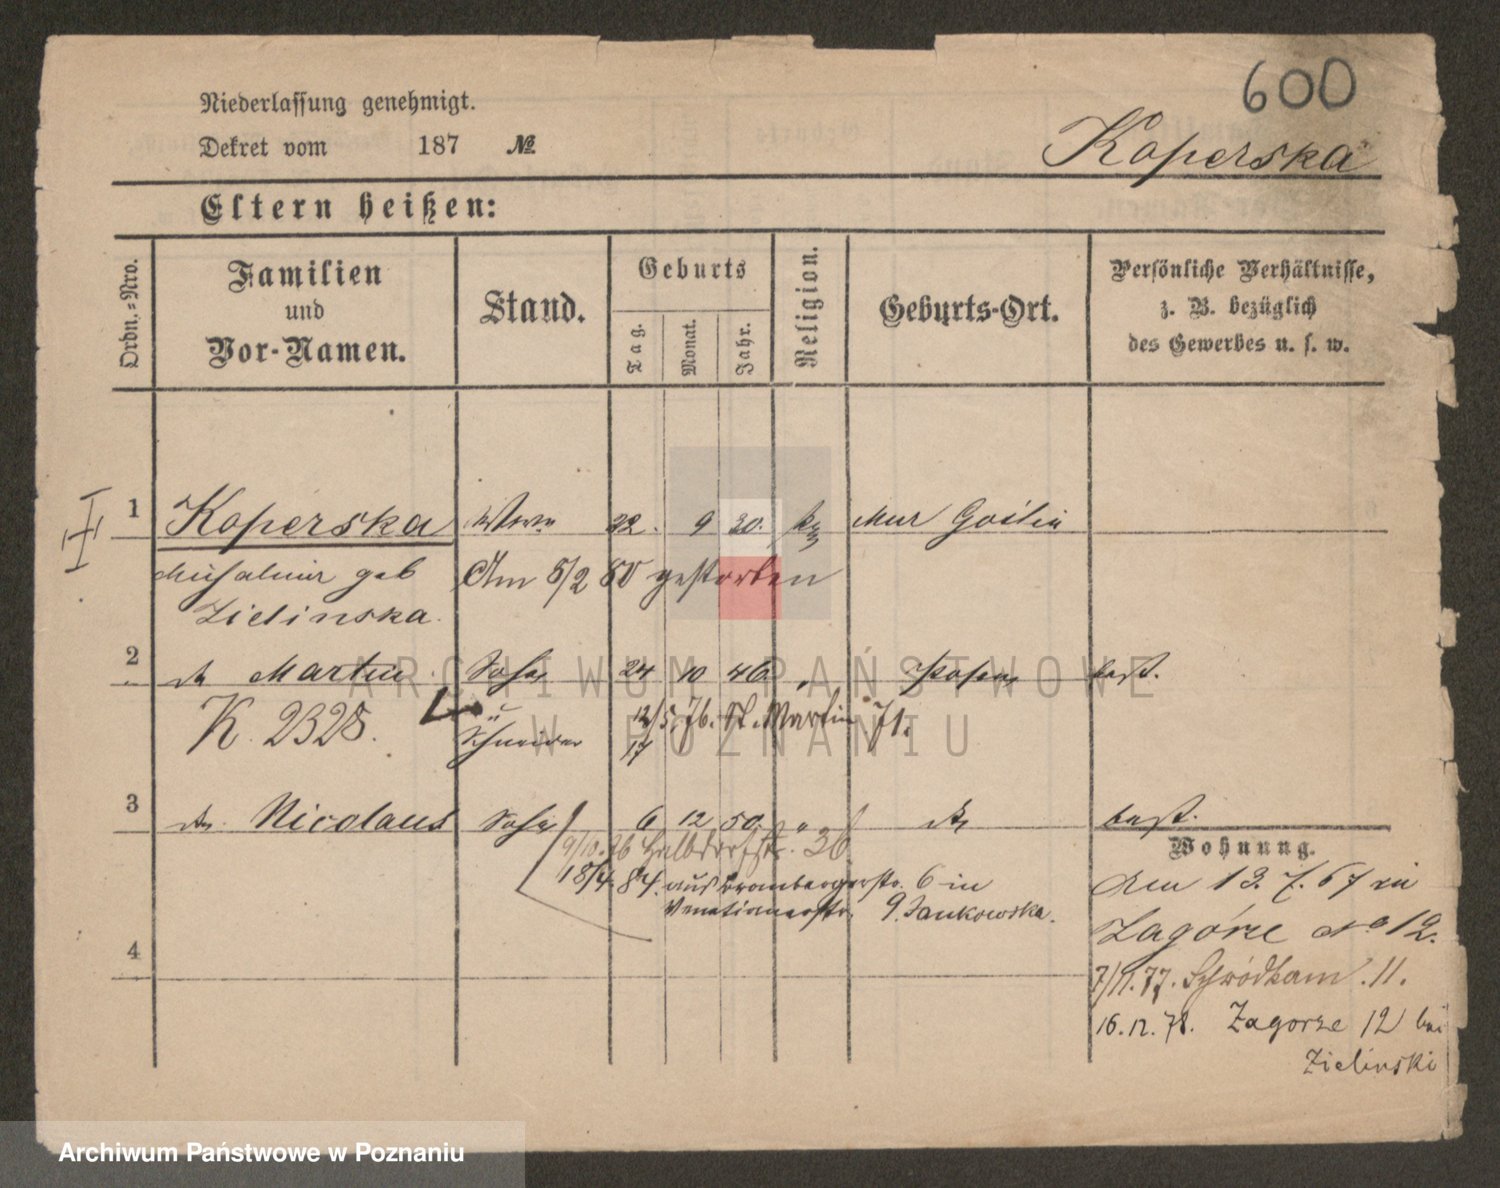 600
Niederlassung genehmigt.
Dekret vom 187 №
Koperska
Eltern heißen:
Ordn.-Nro.
Familien
und
Vor-Namen.
Stand.
Geburts
Tag.
Monat.
Jahr.
Religion.
Geburts-Ort.
Persönliche Verhältnisse,
z. B. bezüglich
des Gewerbes u. s. w.
1 Koperska Wwe 22. 9 20. Mur Goślin
geb
Zielinska.
Am 5/2 80 gestorben
2 Martin Sohn 24 10 46 " Posen
K. 2328.
u
Schneider
12/5. 76. St. Martin 71.
17
3 Nicolaus Sohn 6 12 50. "
9/10. 76 Halbdorfstr. 36
18/4. 84. aus Brombergerstr. 6 in
Venetianerstr. 9. Jankowska.
Wohnung.
Am 13. 7. 67 in
Zagórze No 12.
7/11. 77. Schrodkam. 11.
16. 12. 78. Zagorze 12 bei
Zielinski
4
ARCHIWUM PAŃSTWOWE
W POZNANIU
Archiwum Państwowe w Poznaniu